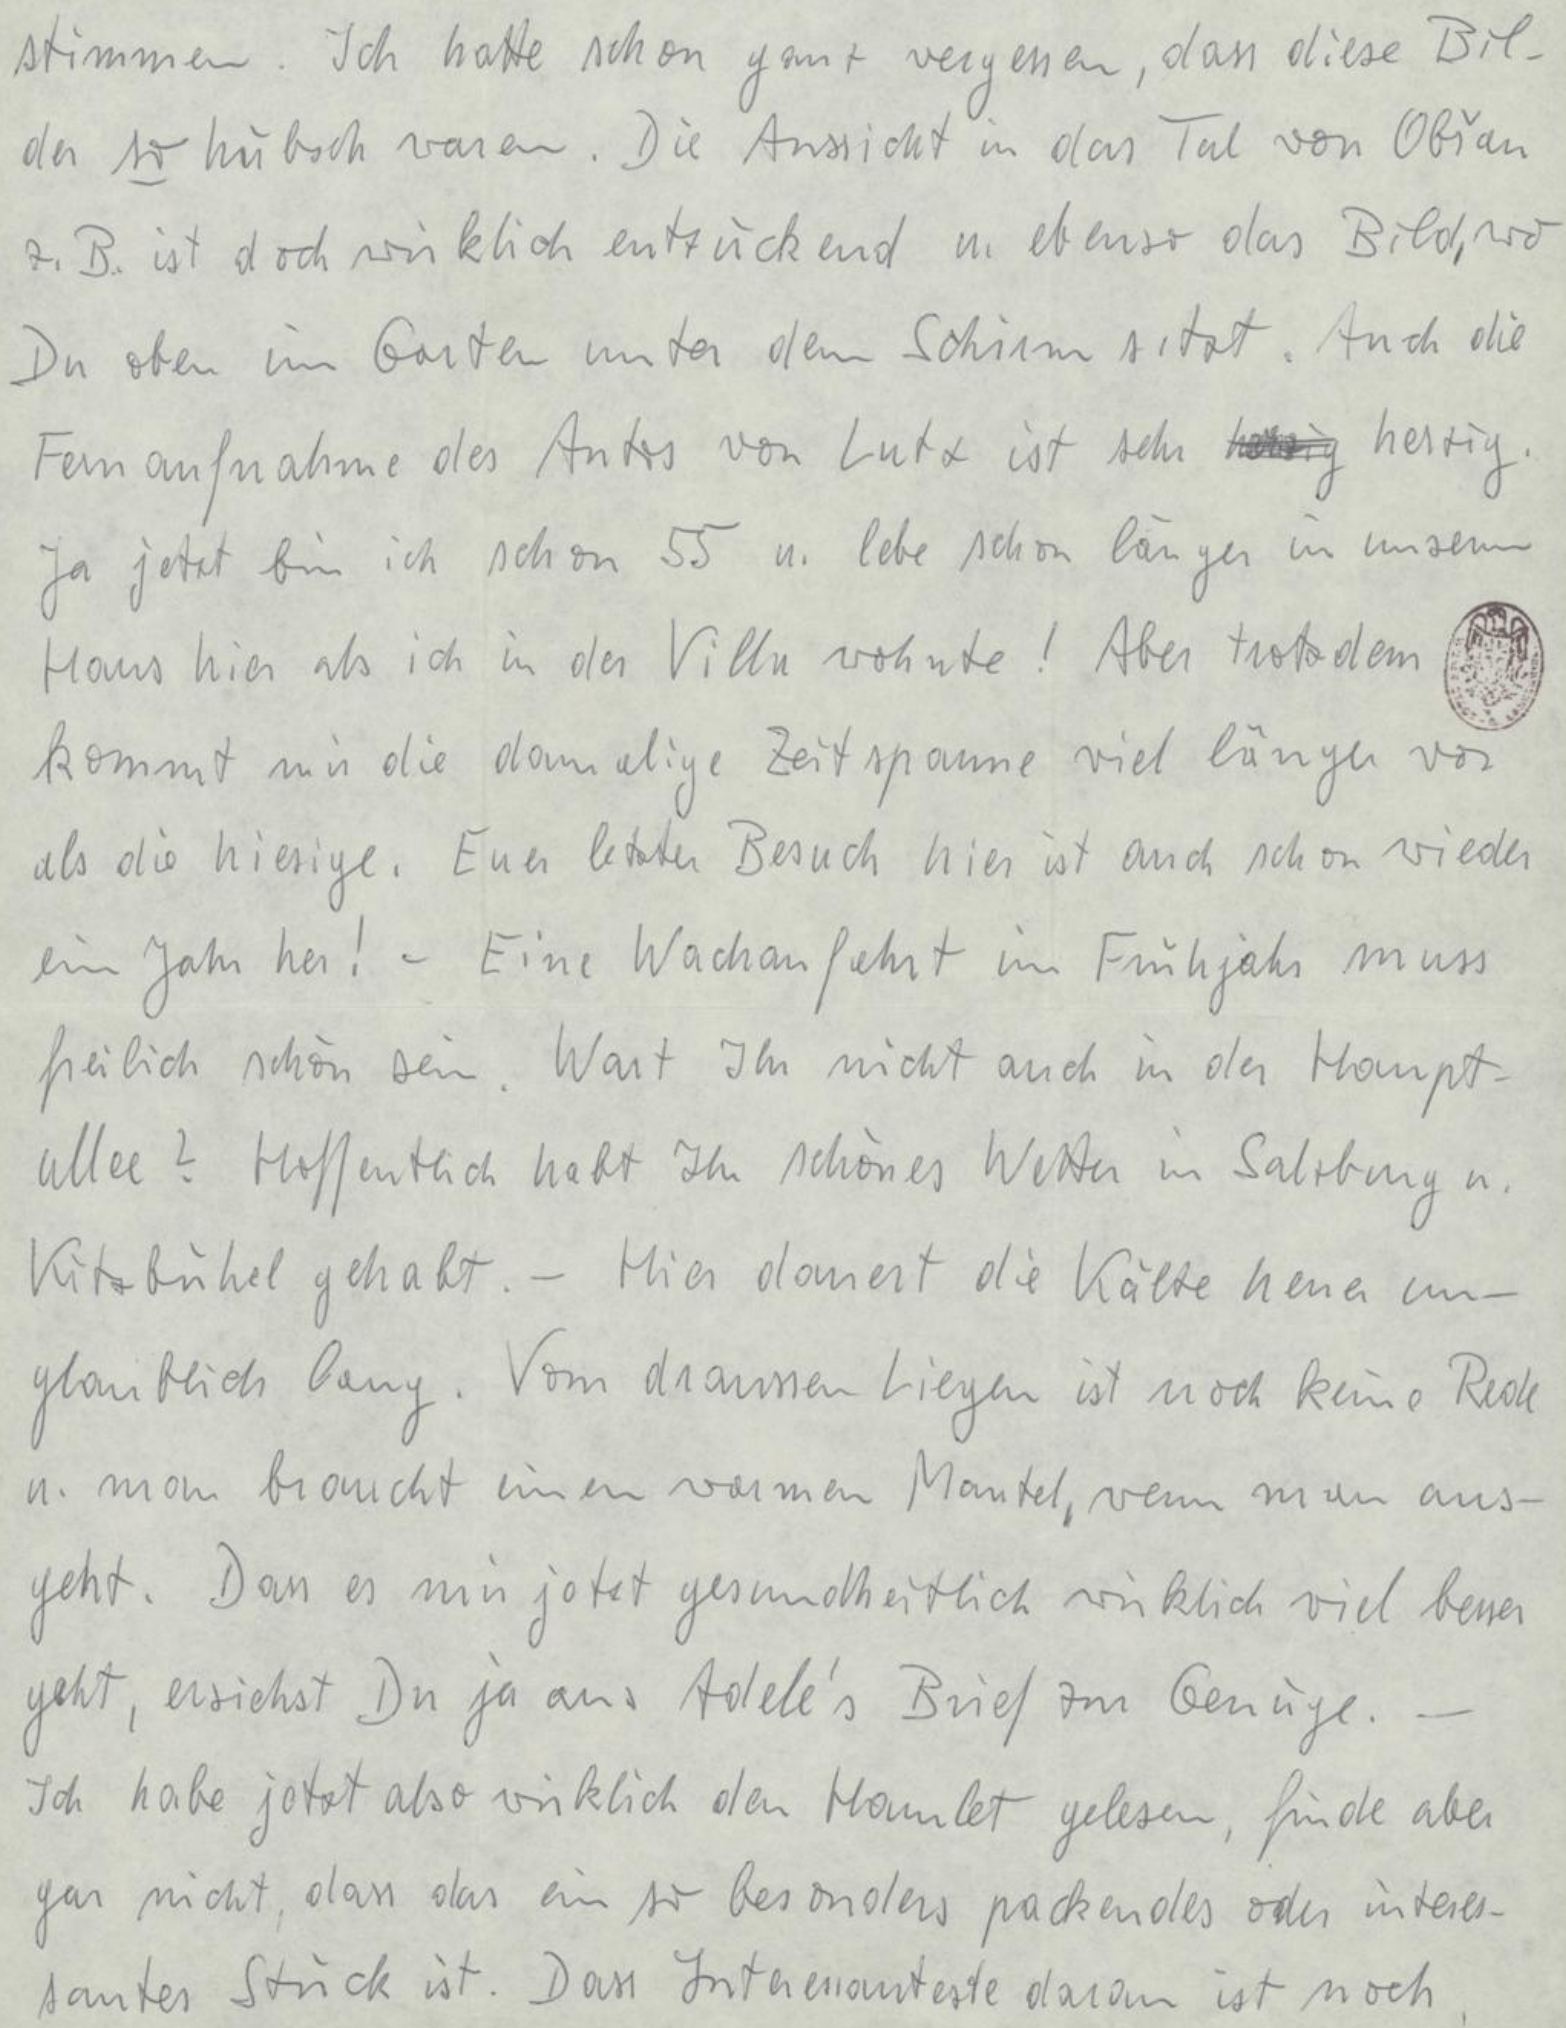 stimmen. Ich hatte schon ganz vergessen, dass diese Bil-
der so hübsch waren. Die Aussicht in das Tal von Obřan
z. B. ist doch wirklich entzückend u. ebenso das Bild, wo
Du oben im Garten unter dem Schirm sitzt. Auch die
Fernaufnahme des Autos von Lutz ist sehr herzig.
Ja jetzt bin ich schon 55 u. lebe schon länger in unserm
Haus hier als ich in der Villa wohnte! Aber trotzdem
kommt mir die damalige Zeitspanne viel länger vor
als die hiesige. Euer letzter Besuch hier ist auch schon wieder
ein Jahr her! – Eine Wachaufahrt im Frühjahr muss
freilich schön sein. Wart Ihr nicht auch in der Haupt-
allee? Hoffentlich habt Ihr schönes Wetter in Salzburg u.
Kitzbühel gehabt. – Hier dauert die Kälte heuer un-
glaublich lang. Vom draussen Liegen ist noch keine Rede
u. man braucht einen warmen Mantel, wenn man aus-
geht. Dass es mir jetzt gesundheitlich wirklich viel besser
geht, ersiehst Du ja aus Adele's Brief zur Genüge. —
Ich habe jetzt also wirklich den Hamlet gelesen, finde aber
gar nicht, dass das ein so besonders packendes oder interes-
santes Stück ist. Dass Interessanteste daran ist noch